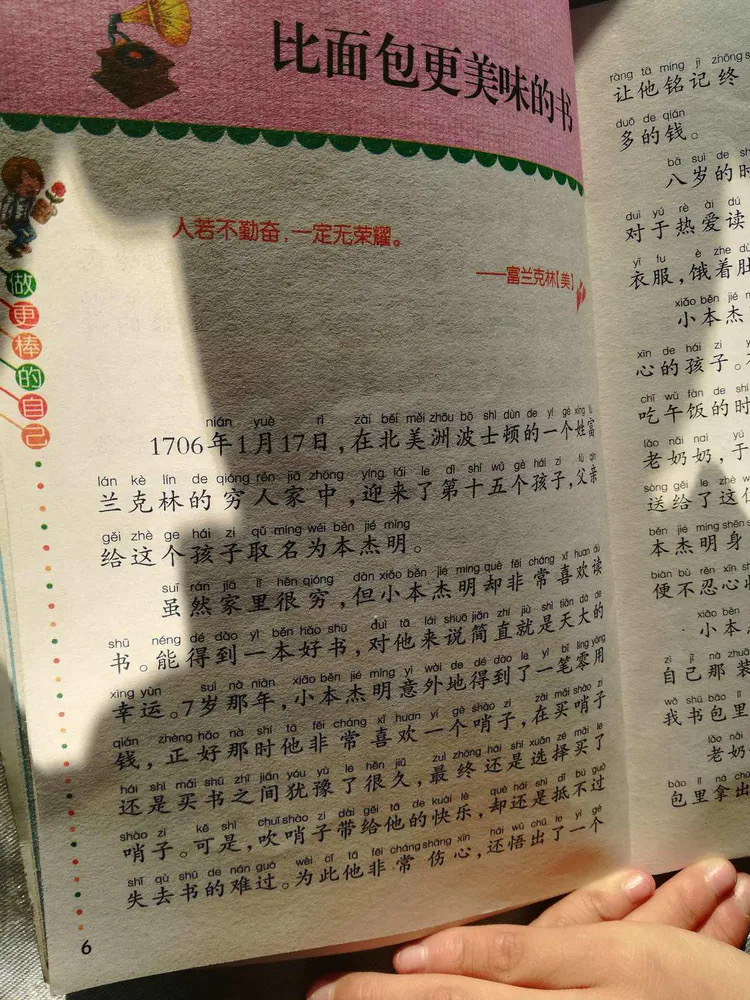 比面包更美味的书
人若不勤奋，一定无荣耀。
——富兰克林【美】
做更棒的自己
nián yuè rì zài běi měi zhōu bō shì dùn de yí gè xìng fù
1706年1月17日，在北美洲波士顿的一个姓富
lán kè lín de qióng rén jiā zhōng yíng lái le dì shí wǔ gè hái zi fù qīn
兰克林的穷人家中，迎来了第十五个孩子，父亲
gěi zhè ge hái zi qǔ míng wéi běn jié míng
给这个孩子取名为本杰明。
suī rán jiā lǐ hěn qióng dàn xiǎo běn jié míng què fēi cháng xǐ huan dú
虽然家里很穷，但小本杰明却非常喜欢读
shū néng dé dào yì běn hǎo shū duì tā lái shuō jiǎn zhí jiù shì tiān dà de
书。能得到一本好书，对他来说简直就是天大的
xìng yùn suì nà nián xiǎo běn jié míng yì wài de dé dào le yì bǐ líng yòng
幸运。7岁那年，小本杰明意外地得到了一笔零用
qián zhèng hǎo nà shí tā fēi cháng xǐ huan yí gè shào zi zài mǎi shào zi
钱，正好那时他非常喜欢一个哨子，在买哨子
hái shì mǎi shū zhī jiān yóu yù le hěn jiǔ zuì zhōng hái shì xuǎn zé mǎi le
还是买书之间犹豫了很久，最终还是选择买了
shào zi kě shì chuī shào zi dài gěi tā de kuài lè què hái shì dǐ bú guò
哨子。可是，吹哨子带给他的快乐，却还是抵不过
shī qù shū de nán guò wèi cǐ tā fēi cháng shāng xīn hái wù chū le yí gè
失去书的难过。为此他非常伤心，还悟出了一个
6
ràng tā míng jì zhōng
让他铭记终
duō de qián
多的钱。
bā suì de shí
八岁的时
duì yú rè ài dú
对于热爱读
yī fu è zhe dù
衣服，饿着肚
xiǎo běn jié
小本杰
xīn de hái zi
心的孩子。
chī wǔ fàn de shí
吃午饭的时
lǎo nǎi nai yú
老奶奶，于
sòng gěi le zhè
送给了这
běn jié míng shēn
本杰明身
biàn bù rěn xīn
便不忍心
xiǎo běn
小本
zì jǐ nà zhuāng
自己那装
wǒ shū bāo lǐ
我书包里
lǎo nǎi
老奶
bāo lǐ ná chū
包里拿出